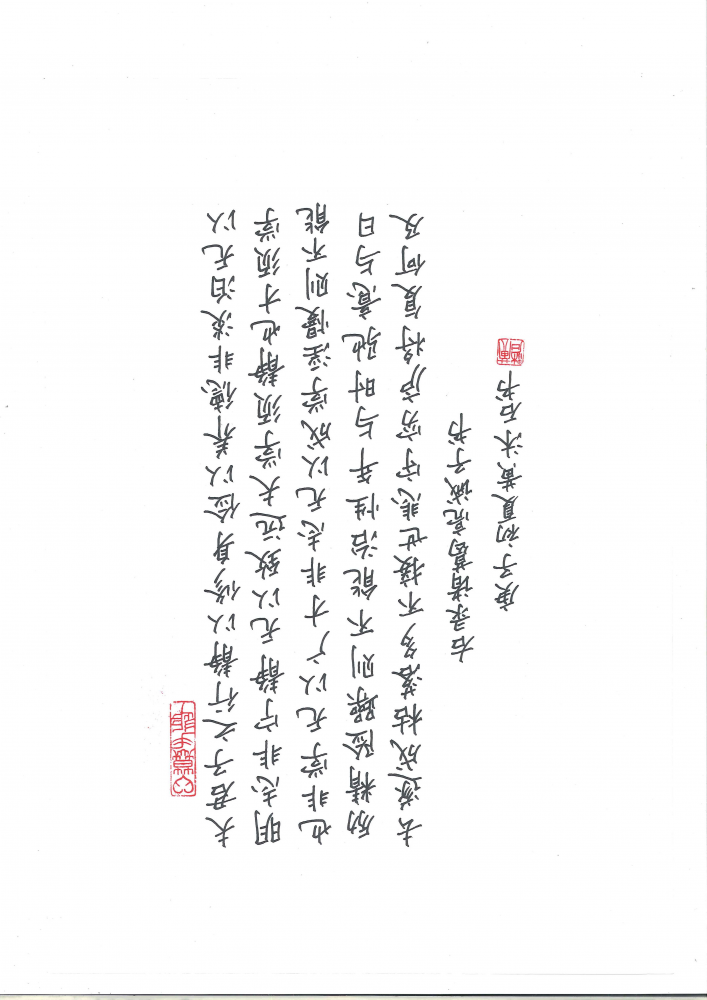 夫君子之行静以修身俭以养德非淡泊无以
明志非宁静无以致远夫学须静也才须学
也非学无以广才非志无以成学淫慢则不能
励精险躁则不能治性年与时驰意与日
去遂成枯落多不接世悲守穷庐将复何及
右录诸葛亮诫子书
庚子初夏黄沐石书